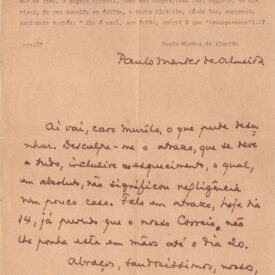 nov.67 Paulo Mendes de Almeida
Paulo Mendes de Almeida
Aí vai, caro Murilo, o que pude dese-
nhar. Desculpe-me o atraso, que se deve
a tudo, inclusive a esquecimento, o qual,
em absoluto, não significou negligência
nem pouco caso. Falo em atraso, hoje dia
14, já prevendo que o nosso Correio não
lhe ponha esta em mãos até o dia 20.
Abraços, saudosíssimos, nossos